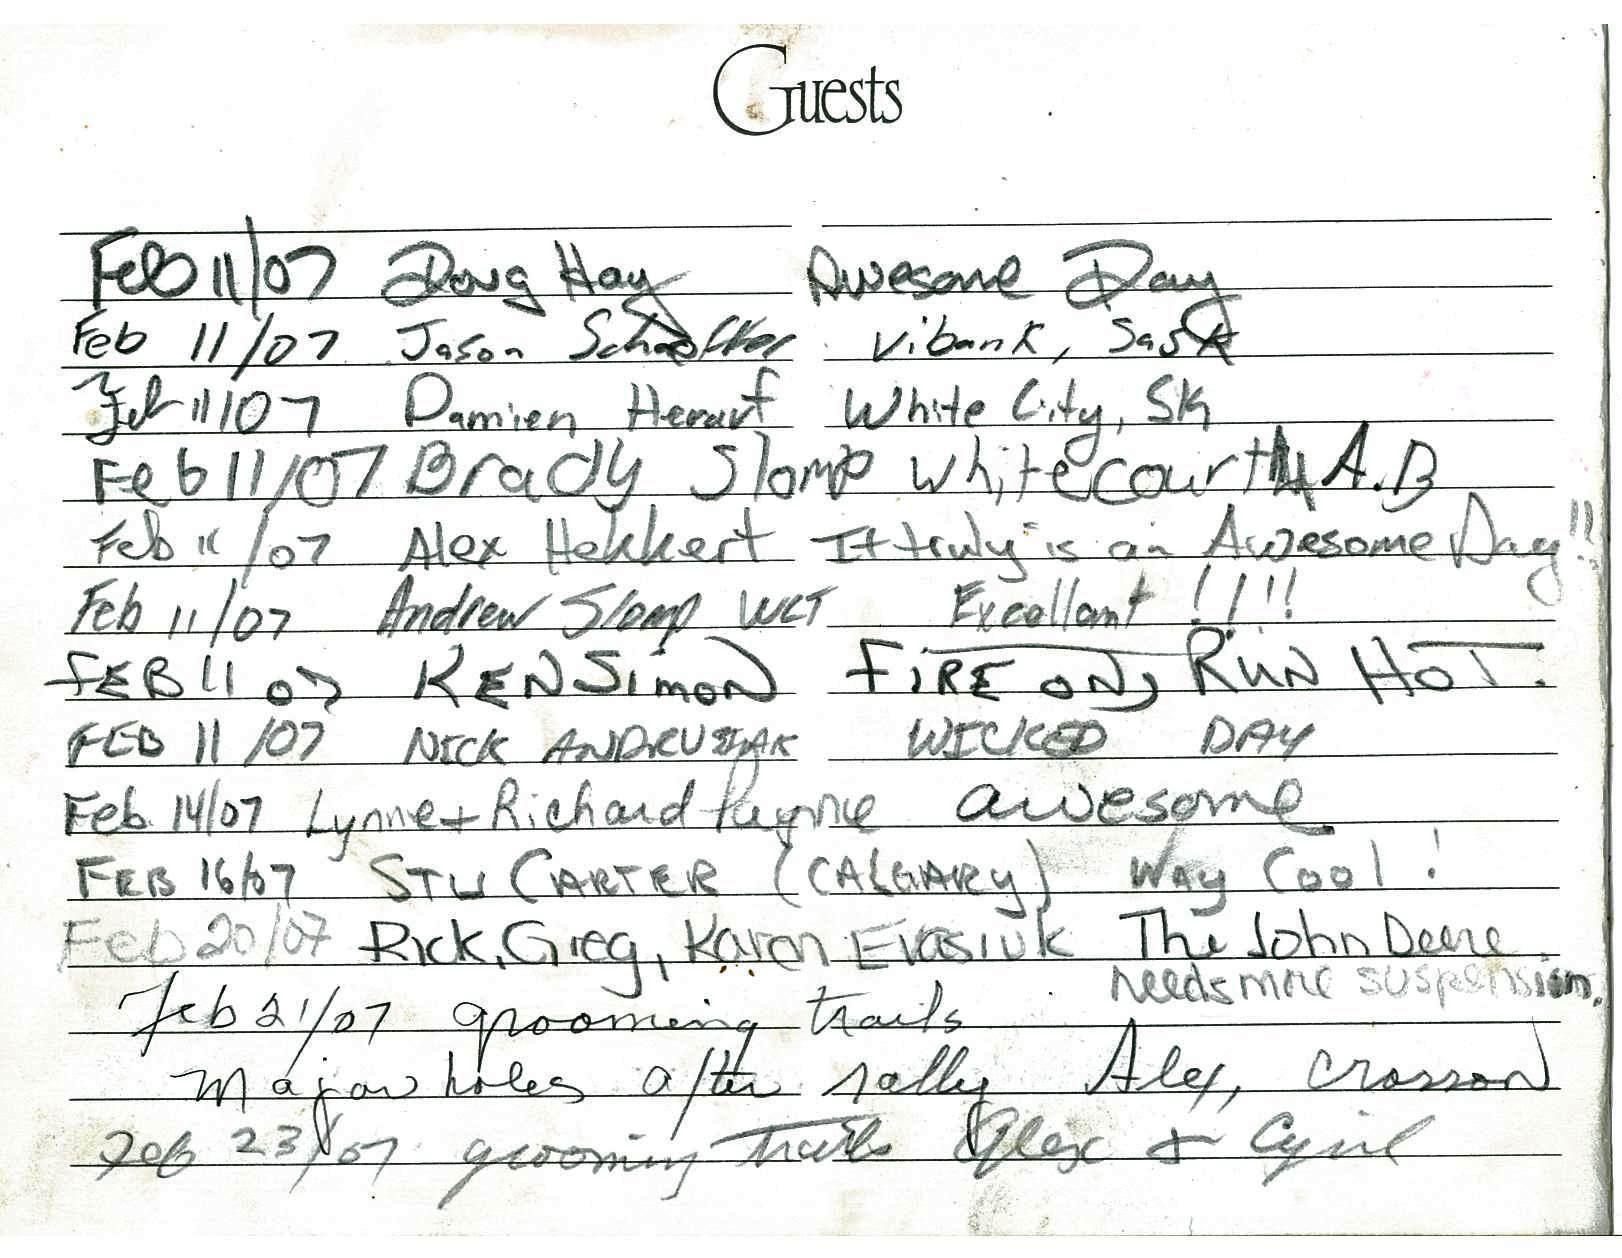 Guests
Feb 11/07 Doug Hay Awesome Day
Feb 11/07 Jason Vibank, Sask
Feb 11/07 Damien Herauf White City, SK
Feb 11/07 Brady Slomp Whitecourt A.B
Feb 11/07 Alex Hekkert It truly is an Awesome Day!!
Feb 11/07 Andrew Slomp WCT Excellant !!!!
FEB 11 07 KEN SimoN FiRE ON, RUN HOT.
FEB 11/07 NICK ANDRUSIAK WICKED DAY
Feb 14/07 Lynne + Richard Payne awesome
FEB 16/07 STU CARTER (CALGARY) WAY COOl!
Feb 20/07 Rick, Greg, Karen Evasiuk The John Deere
needs more suspension.
Feb 21/07 grooming trails
Major holes after rally Alex, Crosson
Feb 23/07 grooming trails Alex + Cyril